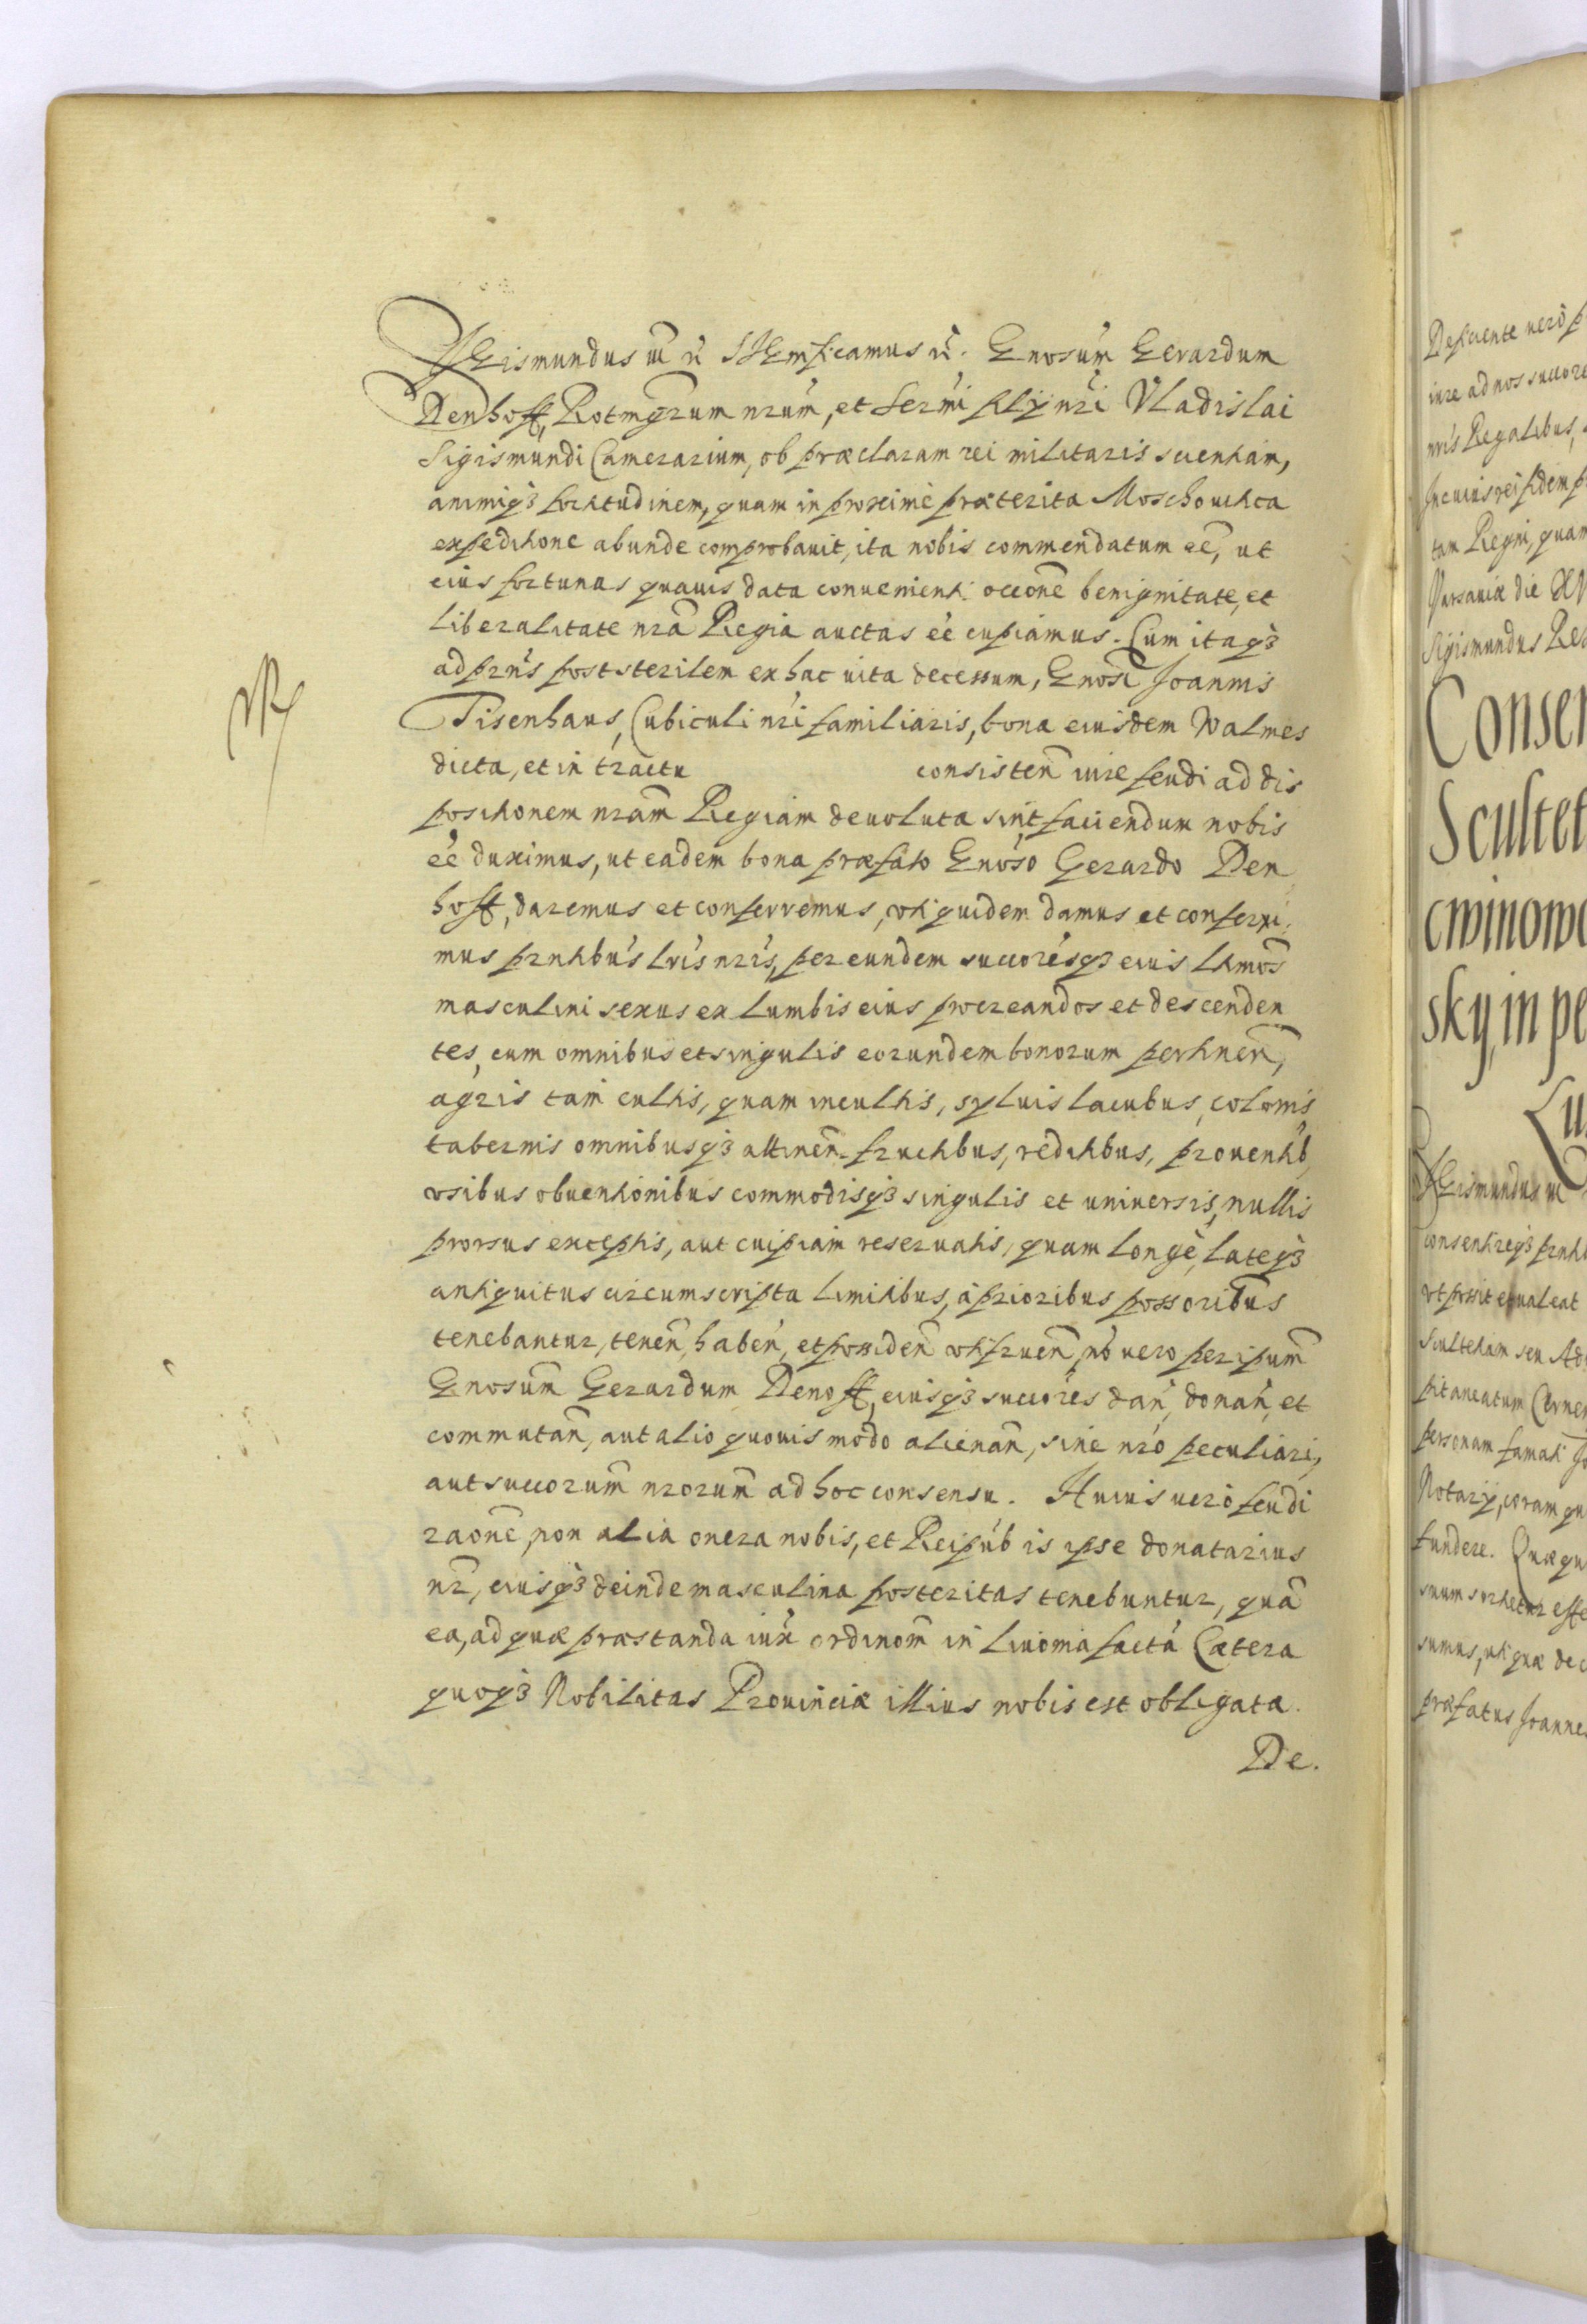 SIGismundus III etc. SIGnificamus etc. Gnosum Gerardum
Denhoff, Rotmgrum nrum, et Sermi filij nri Vladislai
Sigismundi Camerarium, ob præclaram rei militaris scientiam,
animiq3 fortitudinem, quam in proximè præterita Moschouitica
expeditione abunde comprobauit, ita nobis commendatum eẽ, ut
eius fortunas quauis data conuenienti occone benignitate, et
liberalitate nrã Regia auctas eẽ cupiamus. Cum itaq3
ad prns post sterilem ex hac uita decessum, Gnosi Joannis
Tisenhaus, Cubiculi nri familiaris, bona eiusdem Walmes
dicta, et in tractu consisteñ iure feudi ad dis
positionem nram Regiam deuoluta sint, faciendum nobis
eẽ duximus, ut eadem bona præfato Gnoso Gerardo Den
hoff, daremus et conferremus, vti quidem damus et conferi
mus prntibus lris nris, per eundem succoresq3 eius ltimos
masculini sexus ex lumbis eius procreandos et descenden
tes, cum omnibus et singulis eorundem bonorum pertineñ,
agris tam cultis, quam incultis, syluis lacubus, colonis
tabernis omnibusq3 attineñ fructibus, reditibus, prouentib
vsibus obuentionibus commodisq3 singulis et uniuersis, nullis
prorsus exceptis, aut cuipiam reseruatis, quam longè, lateq3
antiquitus circumscripta limitibus, à prioribus possoribus
tenebantur, teneñ, habeñ, et possideñ vtifrueñ, nõ uero per ipsum
Gnosum Gerardum Denoff, eiusq3 succores dañ, donañ, et
commutañ, aut alio quouis modo alienañ, sine nro peculiari,
aut succorum nrorum ad hoc consensu. Huius uerò feudi
raone, non alia onera nobis, et Reipub is ipse donatarius
nr, eiusq3 deinde masculina posteritas tenebuntur, quã
ea, ad quæ præstanda iux ordinom in Liuonia factã Cætera
quoq3 Nobilitas Prouinciæ illius nobis est obligata.
De.
Deficiente uerò p
iure ad nos succore
nris Regalibus,
In cuius rei fidem p
tam Regni, quam
Varsauiæ die XV
Sigismundus Rex
Consen
Scultet
cwinowo
sky, in pe
SIGismundus III
consentireq3 prnti
vt possit et ualeat
Scultetiam seu Adu
pitaneatum Czerne
personam famati Jo
Notarij, coram qu
fundere. Quæ qu
suum sortietur effe
sumus, uti quæ de c
præfatus Joannes